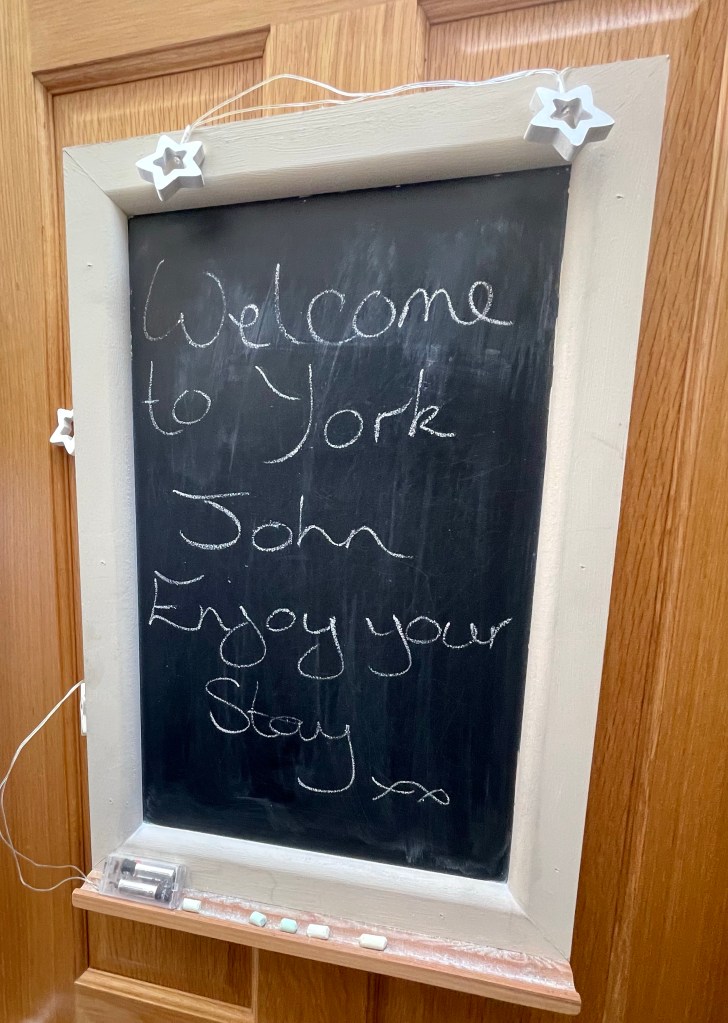 Welcome
to York
John
Enjoy your
Stay xx